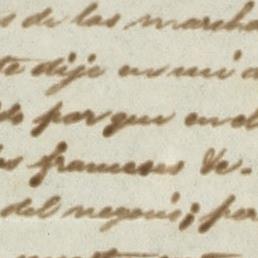 s de las marcha
te dije en mi a
do por que en el
los franceses Ve-
del negocio; por